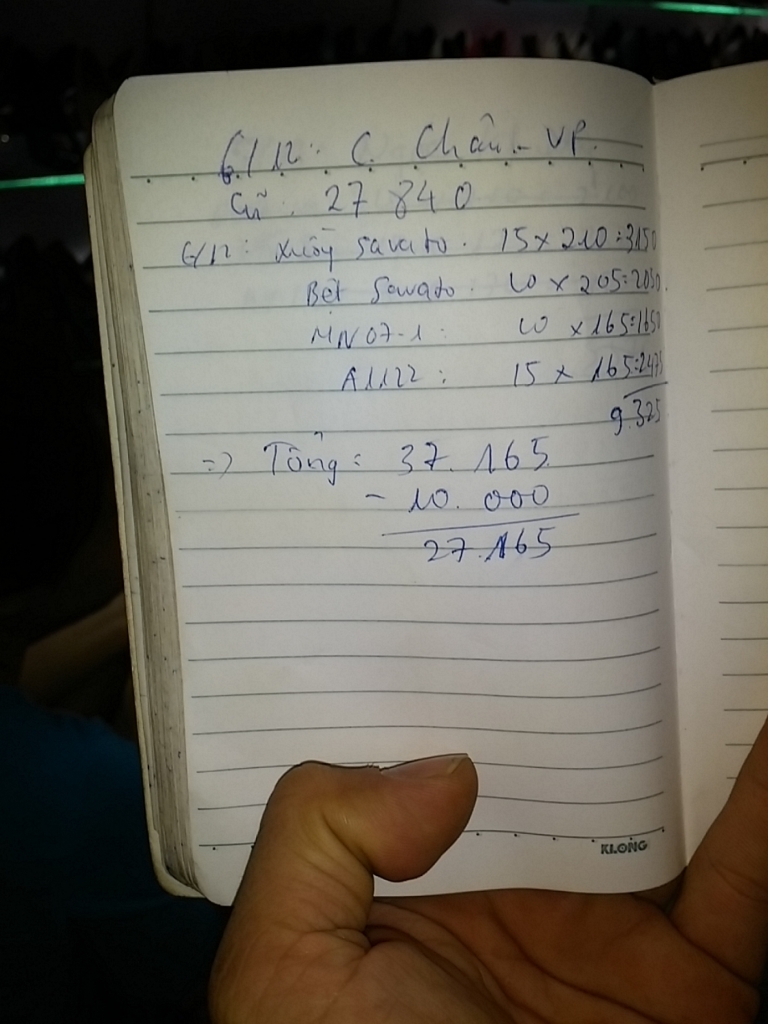 6/12: C. Châu - VP.
Cũ: 27 840
6/12: xuồng Savato. 15 x 210 = 3150
Bệt Sovato. 10 x 205 = 2050.
MN07-1: 10 x 165 = 1650
A1122: 15 x 165 = 2475
9.325
=> Tổng: 37.165
- 10.000
27.165
KLONG